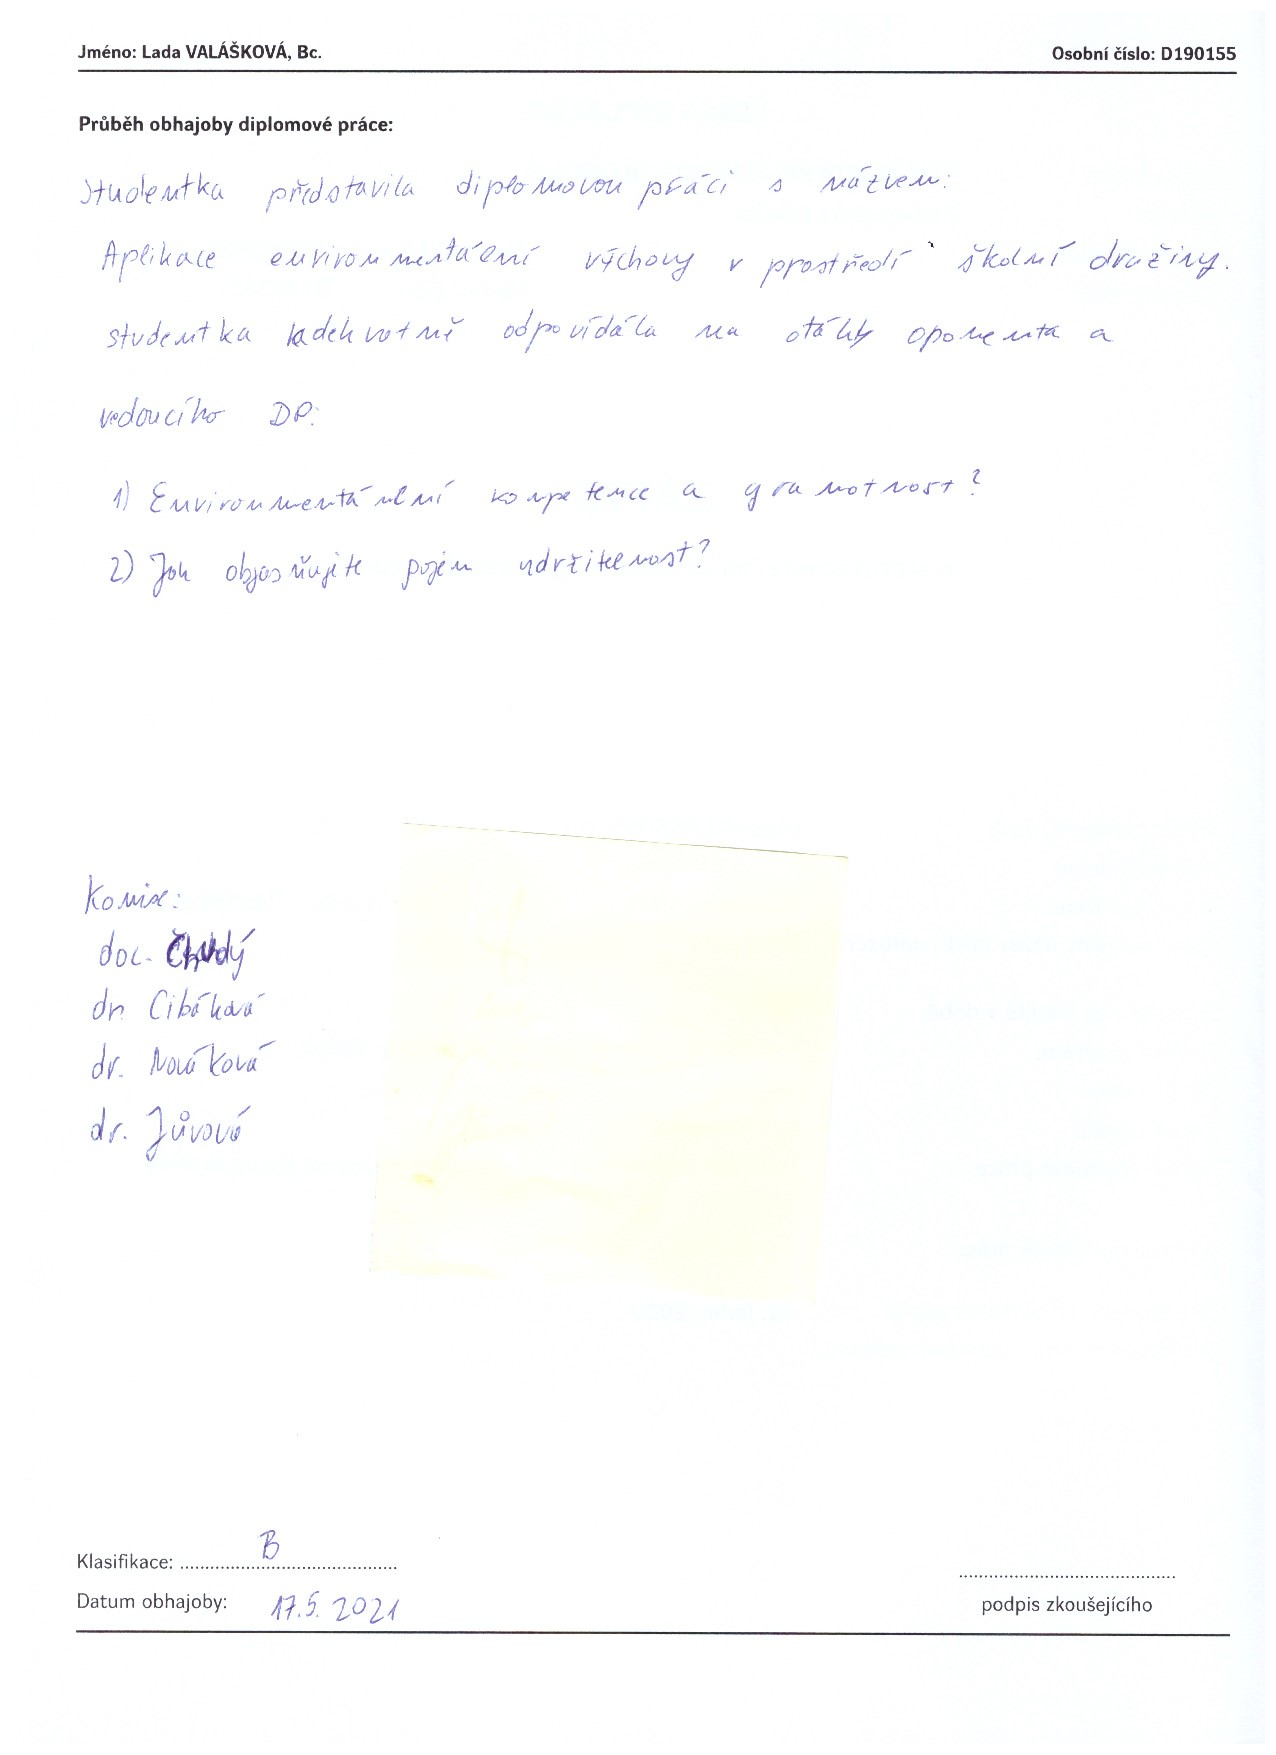 Jméno: Lada VALÁŠKOVÁ, Bc. Osobní číslo: D190155
Průběh obhajoby diplomové práce:
Studentka představila diplomovou práci s názvem:
Aplikace environmentální výchovy v prostředí školní družiny.
studentka adekvotně odpovídála na otázky oponenta a
vedoucího DP:
1) Environmentánlní kompetence a gramotnost?
2) Jak objasňujite pojem udržitelnost?
Komise:
doc. Chudý
dr. Cibáková
dr. Nováková
dr. Jůvová
Klasifikace: ........................................ B
Datum obhajoby: 17.5. 2021
........................................
podpis zkoušejícího